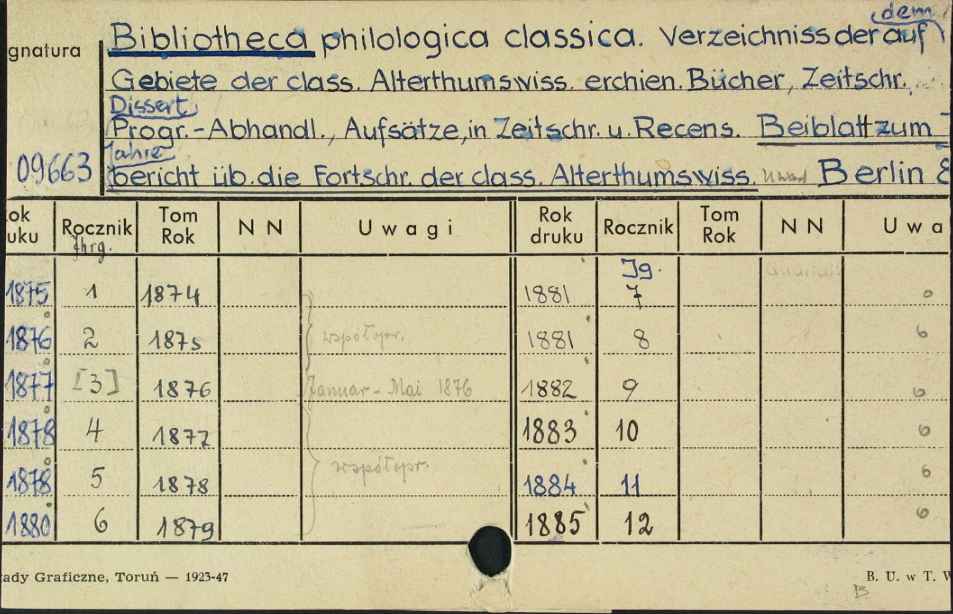 dem
gnatura Bibliotheca philologica classica. Verzeichniss der auf
Gebiete der class. Alterthumswiss. erchien. Bücher, Zeitschr.,
Dissert
Progr.-Abhandl., Aufsätze, in Zeitschr. u. Recens. Beiblatt zum
Jahre
09663 bericht üb. die Fortschr. der class. Alterthumswiss. Berlin
ok uku Rocznik Tom Rok N N Uwagi Rok druku Rocznik Tom Rok N N Uwa
Jhrg. Jg.
1875 1 1874 1881 7 o
1876 2 1875 współopr. 1881 8 6
1877 [3] 1876 Januar - Mai 1876 1882 9 6
1878 4 1877 1883 10 6
1878 5 1878 współopr. 1884 11 6
1880 6 1879 1885 12 6
ady Graficzne, Toruń — 1923-47 B. U. w T. W